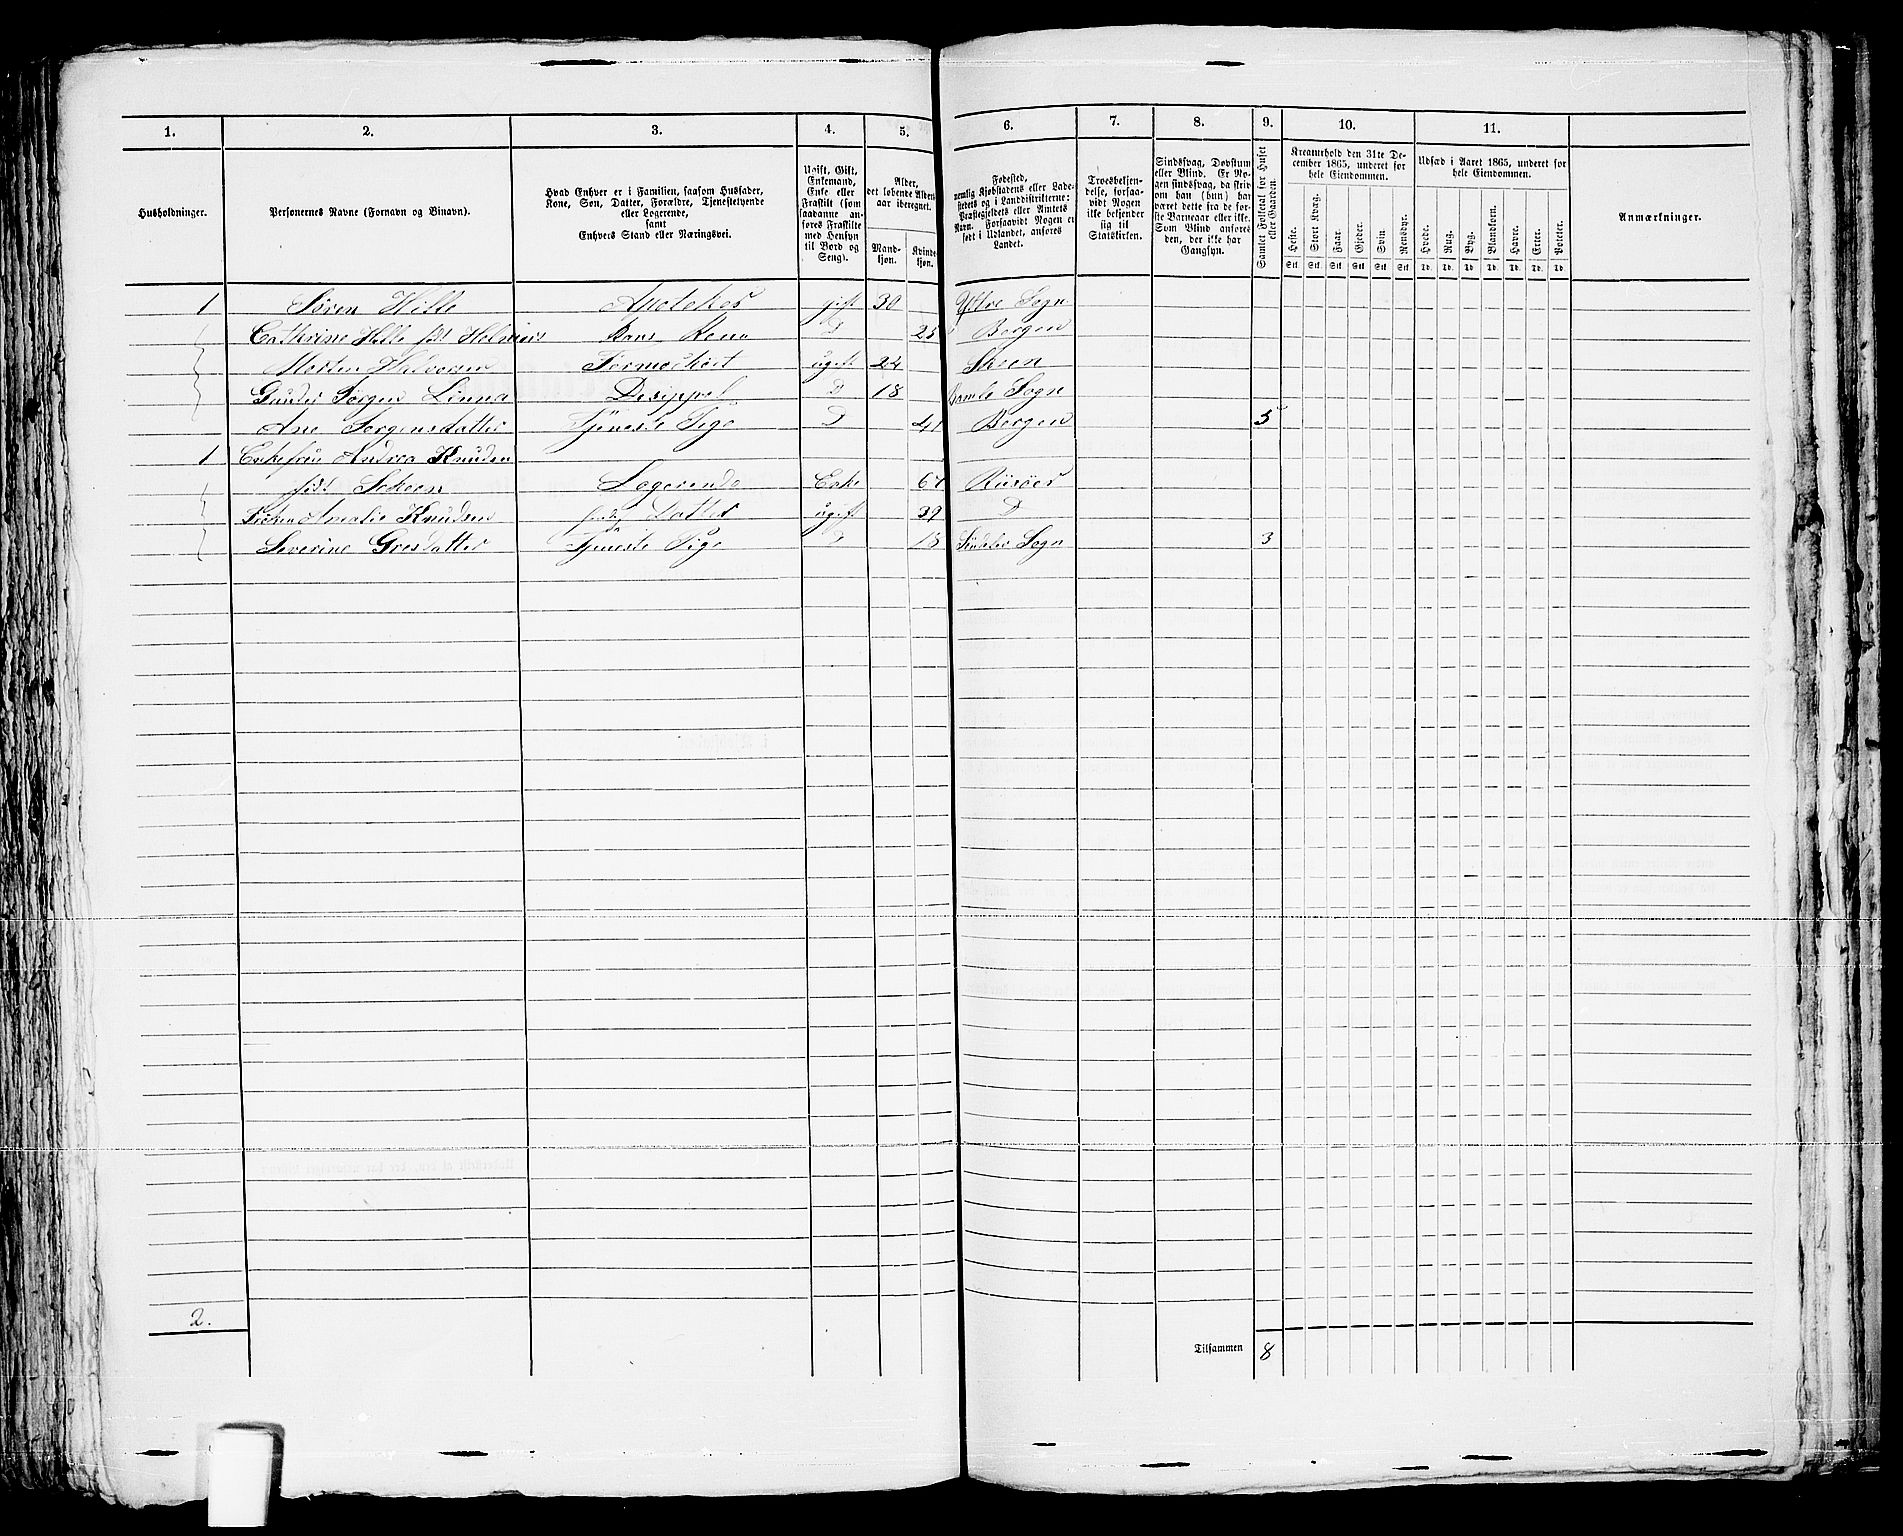 1. 2. 3. 4. 5. 6. 7. 8. 9. 10. 11.
Husholdninger.
Personernes Navne (Fornavn og Binavn).
Hvad Enhver er i Familien, saasom Husfader,
Kone, Søn, Datter, Forældre, Tjenestetyende
eller Logerende,
samt
Enhvers Stand eller Næringsvei.
Ugift, Gift,
Enkemand,
Enke eller
Fraskilt (som
saadanne an-
føres Fraskilte
med Hensyn
til Bord og
Seng).
Alder,
det løbende Alders-
aar iberegnet.
Mand-
kjøn.
Kvinde-
kjøn.
Fødested,
nemlig Kjøbstadens eller Lade-
stedets og i Landdistrikterne:
Præstegjeldets eller Amtets
Navn. Forsaavidt Nogen er
født i Udlandet, anføres
Landet.
Troesbekjen-
delse, forsaa-
vidt Nogen
ikke bekjender
sig til
Statskirken.
Sindssvag, Døvstum
eller Blind. Er No-
gen sindssvag, da skriv
om han (hun) har
været dette fra de før-
ste Barneaar eller ikke.
Som Blind anføres
den, der ikke har
Gangsyn.
Samlet Folketal for Huset
eller Gaarden.
Kreaturhold den 31te De-
cember 1865, underet for
hele Eiendommen.
Heste. Stort Kvæg. Faar. Gjeder. Svin. Rensdyr.
Stk. Stk. Stk. Stk. Stk. Stk.
Udsæd i Aaret 1865, underet for
hele Eiendommen.
Hvede. Rug. Byg. Blandkorn. Havre. Erter. Poteter.
Td. Td. Td. Td. Td. Td. Td.
Anmærkninger.
1 Søren Hille Apotheker gift 30 Sogn
Cathrine Hille født Hans Kone D 25 Bergen
Morten Halvorsen ugift 24 Skeen
Jørgen Linna Desippel D 18 Bamle Sogn
Ane Jørgensdatter Tjeneste Pige D 41 Bergen 5
1 Enkefrue Andrea Knudsen
født Logerende Enke 67 Risøer
Frøken Amalie Knudsen Datter ugift 39 D
Severine Tjeneste Pige D Sogn 3
2.
Tilsammen 8